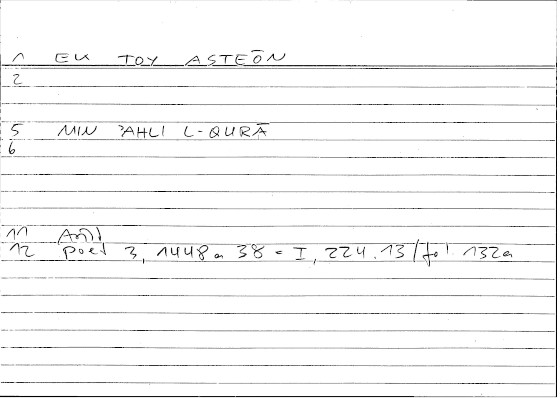 1 EK TOY ASTEŌN
2
5 MIN ʾAHLI L-QURĀ
6
11 Arist
12 Poet 3, 1448 a 38 = I, 224.13 / fol 132a